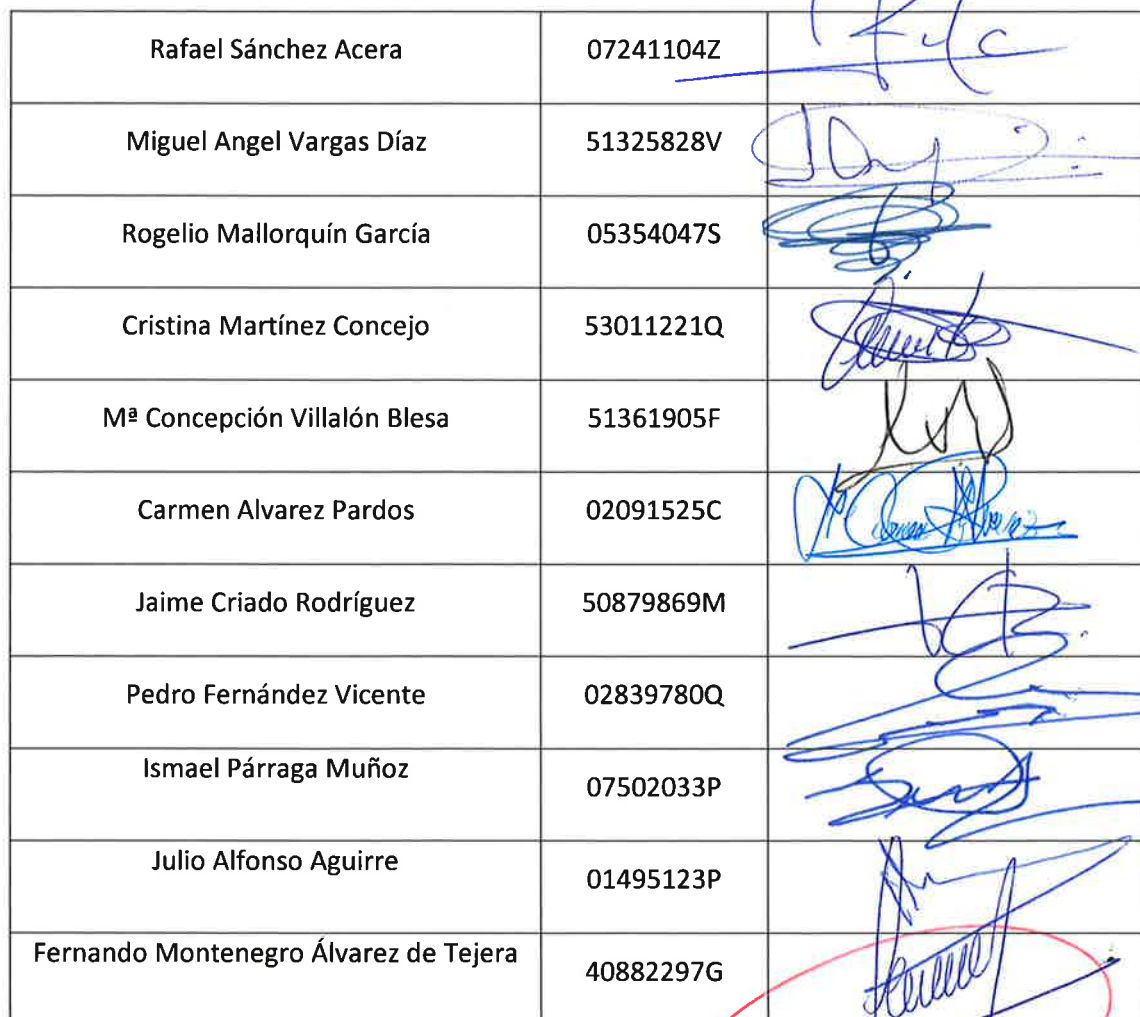 Rafael Sánchez Acera 07241104Z
Miguel Angel Vargas Díaz 51325828V
Rogelio Mallorquín García 05354047S
Cristina Martínez Concejo 53011221Q
Mª Concepción Villalón Blesa 51361905F
Carmen Alvarez Pardos 02091525C
Jaime Criado Rodríguez 50879869M
Pedro Fernández Vicente 02839780Q
Ismael Párraga Muñoz 07502033P
Julio Alfonso Aguirre 01495123P
Fernando Montenegro Álvarez de Tejera 40882297G